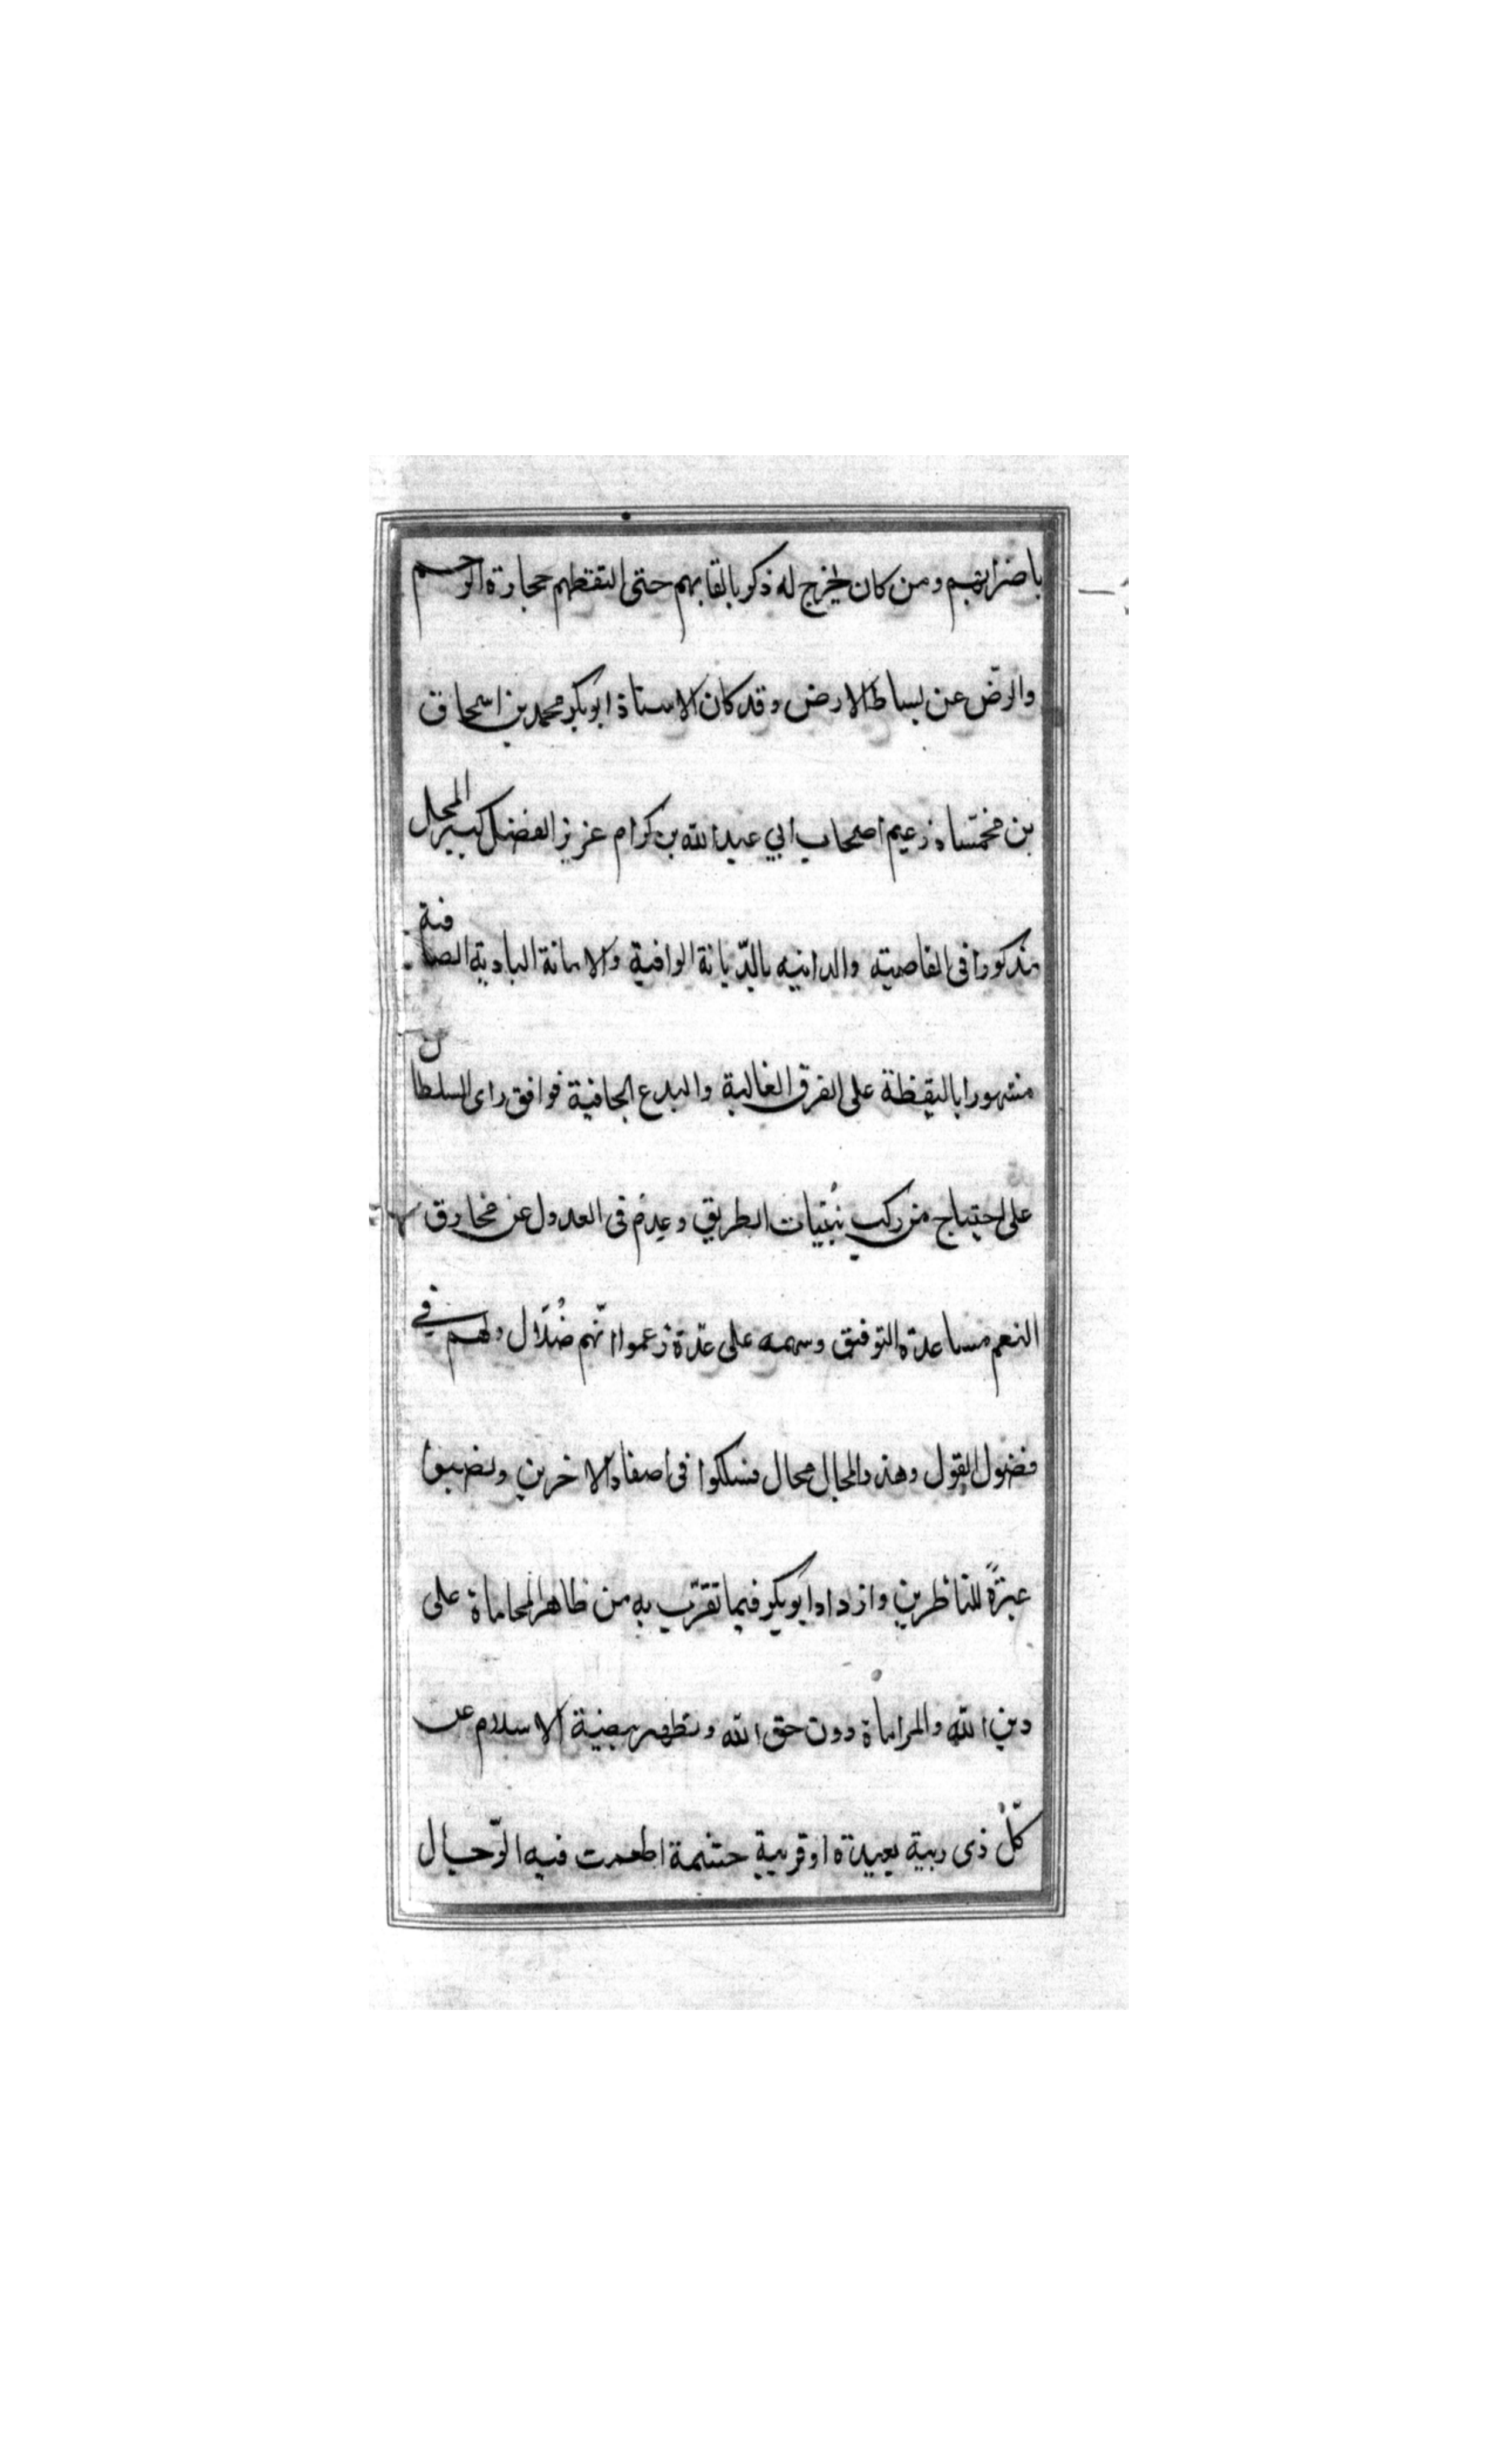 باضرابهم ومن كان يخرج له ذكر بالقابهم حتى التقطهم حجارة الرجم
والرض عن بساط الارض وقد كان الاستاذ ابو بكر محمد بن اسحاق
بن محمشاد زعيم اصحاب ابي عبد الله بن كرام عزيز الفضل كبير المحل
مذكورا فى القاصيته والدانيه بالدّيانة الوافية والامانة البادية الصافية
مشهورا باليقظة على الفرق الغالية والبدع الجافية فوافق راى السلطان
على اجتياح من ركب بُنيات الطريق وعدم فى العدول عن مخارق
النعم مساعدة التوفيق وسهمه على عدة زعموا انّهم ضُلّال ولهم في
فضول القول وهذر المجال محال فسلكوا فى اصفاد الاخرين ونصبوا
عبرةً للناظرين وازداد ابو بكر فيما تقرّب به من ظاهر المحاماة على
دين الله والمراماة دون حق الله وتطهير بيضة الاسلام عن
كلّ ذى ريبة بعيدة او قريبة حشمة اطعمت فيه الرّجال